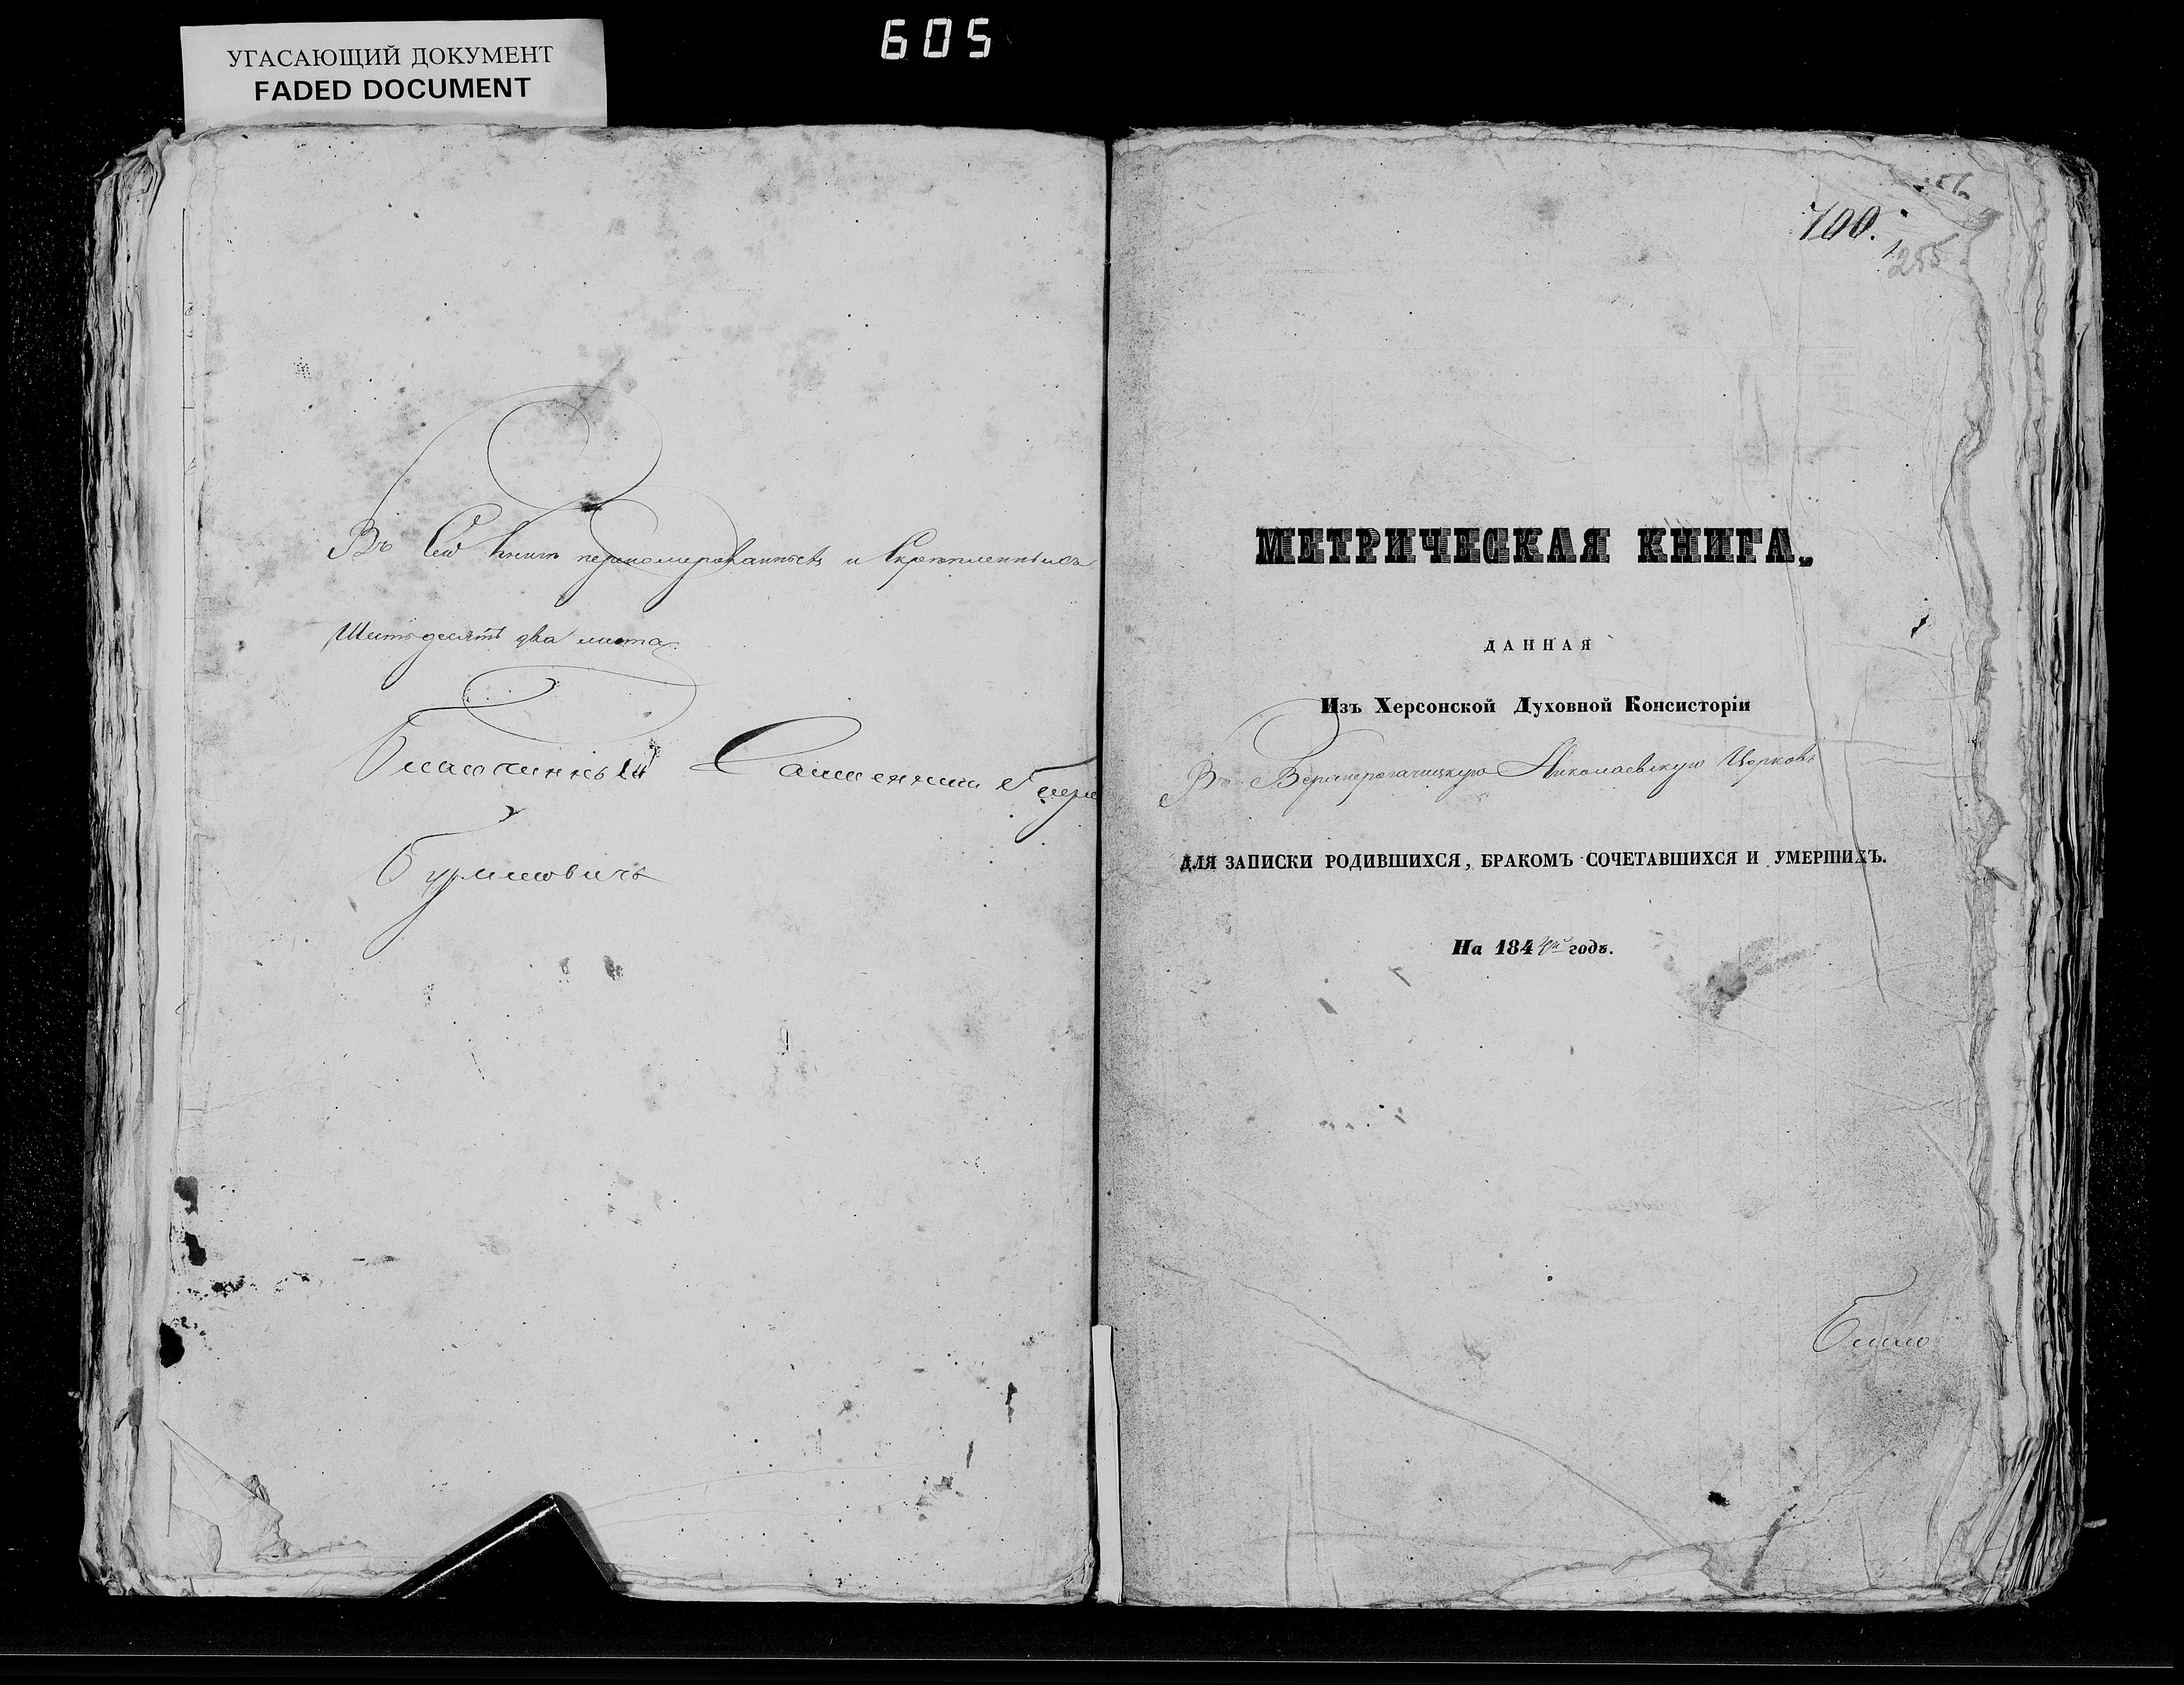 605
УГАСАЮЩИЙ ДОКУМЕНТ
FADED DOCUMENT
Въ Сей книге перенумерованныхъ и скрепленныхъ
Шестьдесятъ два листа.
Благочинный Священникъ
700.
255
МЕТРИЧЕСКАЯ КНИГА,
ДАННАЯ
Изъ Херсонской Духовной Консисторіи
Въ Верхнерогачицкую Николаевскую Церковь
ДЛЯ ЗАПИСКИ РОДИВШИХСЯ, БРАКОМЪ СОЧЕТАВШИХСЯ И УМЕРШИХЪ.
На 184 годъ.
Благо